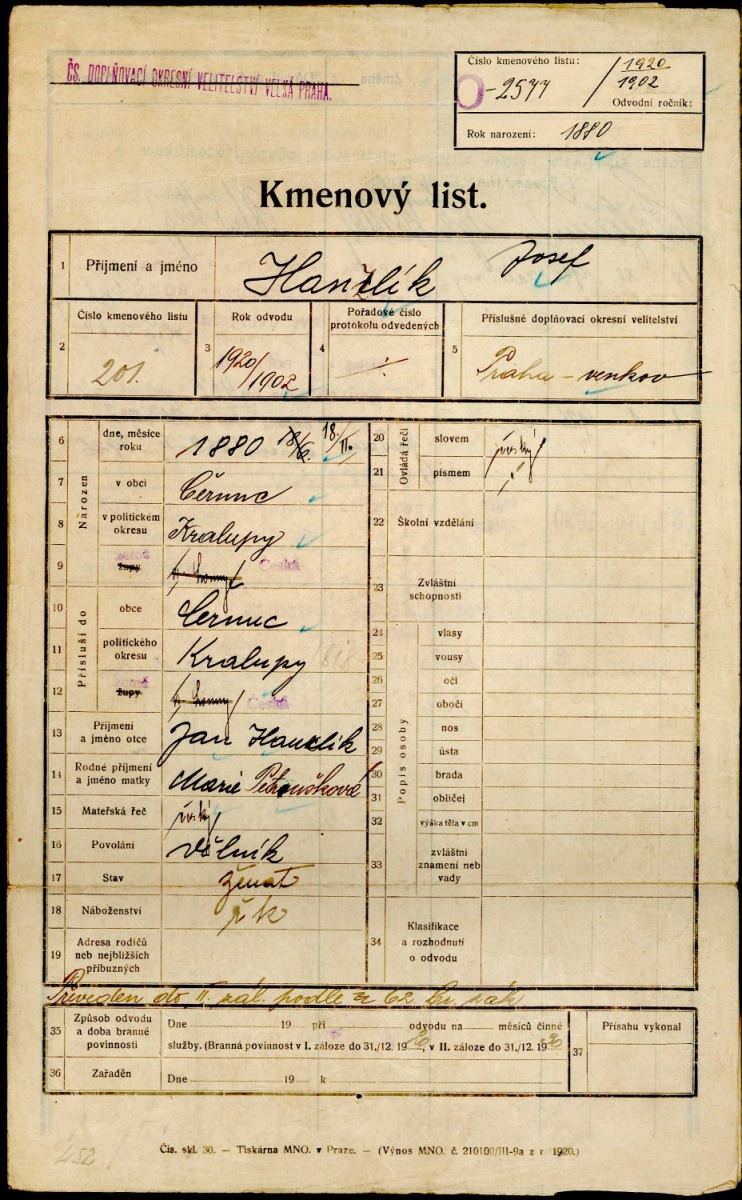 ČS. DOPLŇOVACÍ OKRESNÍ VELITELSTVÍ VELKÁ PRAHA.
Číslo kmenového listu:
-2577 / 1920
1902
Odvodní ročník:
Rok narození: 1880
Kmenový list.
1 Příjmení a jméno Hanzlík Josef
2 Číslo kmenového listu 201.
3 Rok odvodu 1920/1902
4 Pořadové číslo protokolu odvedených
5 Příslušné doplňovací okresní velitelství Praha – venkov
Narozen
6 dne, měsíce roku 1880 18/6. 18./II.
7 v obci Černuc
8 v politickém okresu Kralupy
9 země župy Česká
Přísluší do
10 obce Černuc
11 politického okresu Kralupy
12 země župy Česká
13 Příjmení a jméno otce Jan Hanzlík
14 Rodné příjmení a jméno matky Marie Petroušková
15 Mateřská řeč
16 Povolání dělník
17 Stav ženat
18 Náboženství řk
19 Adresa rodičů neb nejbližších příbuzných
Ovládá řeči
20 slovem
21 písmem
22 Školní vzdělání
23 Zvláštní schopnosti
Popis osoby
24 vlasy
25 vousy
26 oči
27 obočí
28 nos
29 ústa
30 brada
31 obličej
32 výška těla v cm
33 zvláštní znamení neb vady
34 Klasifikace a rozhodnutí o odvodu
Převeden do II. zál. podle § 62 br. zák
35 Způsob odvodu a doba branné povinnosti
Dne 19 při odvodu na měsíců činné
služby. (Branná povinnost v I. záloze do 31./12. 1920, v II. záloze do 31./12. 1930
36 Zařaděn Dne 19 k
37 Přísahu vykonal
Čís. skl. 30. — Tiskárna MNO. v Praze. — (Výnos MNO. č. 210100/III-9a z r. 1920.)
252